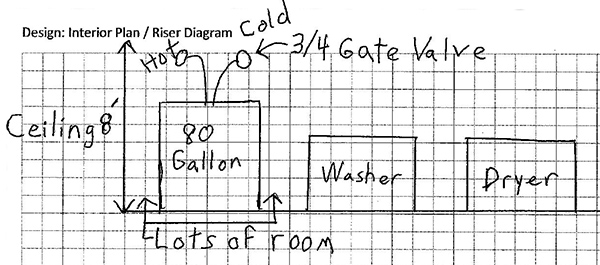 Design: Interior Plan / Riser Diagram
Cold
Hot
3/4 Gate Valve
Ceiling 8'
80
Gallon
Washer
Dryer
Lots of room